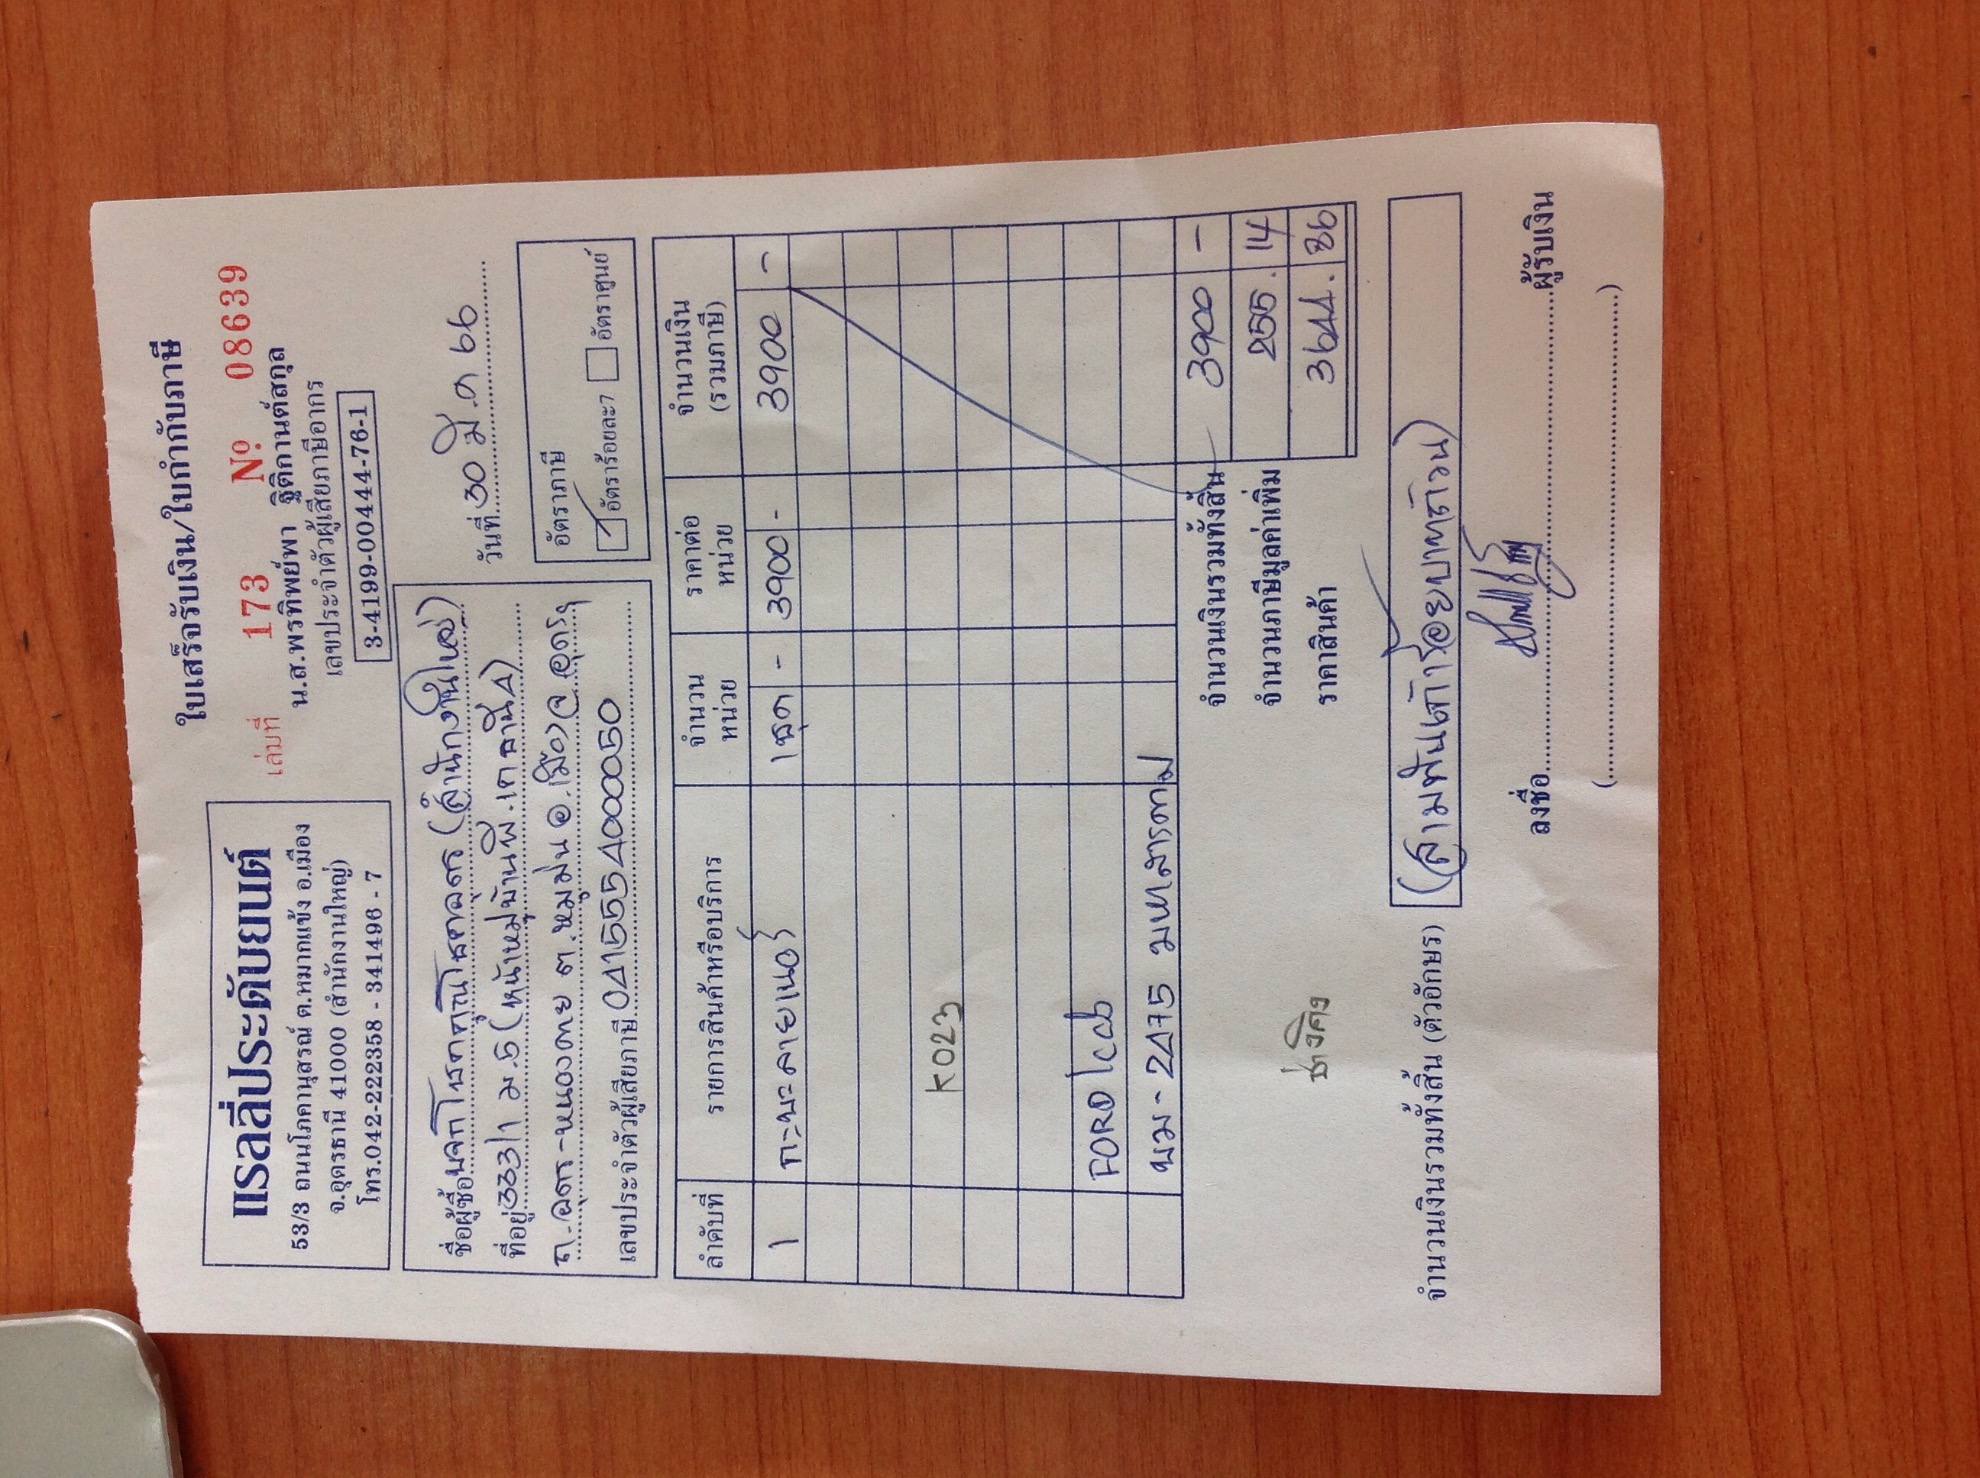 ใบเสร็จรับเงิน/ใบกำกับภาษี
แรลลี่ประดับยนต์
53/3 ถนนโภคานุสรณ์ ต.หมากแข้ง อ.เมือง
จ.อุดรธานี 41000 (สำนักงานใหญ่)
โทร.042-222358 - 341496 - 7
เล่มที่ 173 Nº 08639
น.ส.พรทิพย์พา ฐิติกานต์สกุล
เลขประจำตัวผู้เสียภาษีอากร
3-4199-00444-76-1
วันที่ 30 มี.ค 66
ชื่อผู้ซื้อ บจก โชคคูณโชคอุดร (สำนักงานใหญ่)
ที่อยู่ 333/1 ม.5 (หน้าหมู่บ้านพี.เค.ธานี4)
ถ.อุดร-หนองคาย ต.หมูม่น อ.เมือง จ อุดรฯ
เลขประจำตัวผู้เสียภาษี 0415554000050
อัตราภาษี
อัตราร้อยละ7 อัตราศูนย์
ลำดับที่ รายการสินค้าหรือบริการ จำนวนหน่วย ราคาต่อหน่วย จำนวนเงิน (รวมภาษี)
1 กะบะลายเนอร์ 1 ชุด - 3900 - 3900 -
K023
FORD 1cab
ขม - 2475 มหาสารคาม
จำนวนเงินรวมทั้งสิ้น 3900 -
จำนวนภาษีมูลค่าเพิ่ม 255.14
ราคาสินค้า 3644.86
จำนวนเงินรวมทั้งสิ้น (ตัวอักษร) (สามพันเก้าร้อยบาทถ้วน)
ลงชื่อ ผู้รับเงิน
( )